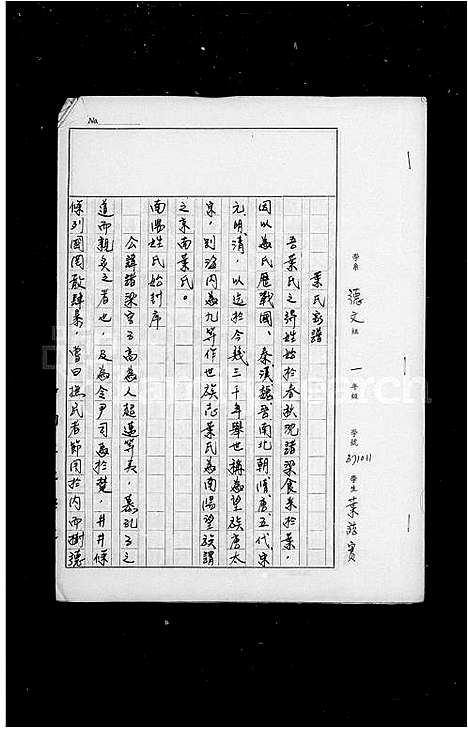 No.
學系 德文組 一年級 學號 371011 學生 葉蒨寶
葉氏家譜
吾葉氏之得姓始於春秋祝諸梁食采於葉,
因以為氏歷戰國、秦漢魏晉南北朝隋唐五代宋
元明清,以迄於今幾三千年舉世稱為望族唐太
宗,別海內為九等作世族志葉氏為南陽望族謂
之京南葉氏。
南陽姓氏始封序
公諱諸梁字子高為人超邁等夷,慕孔子之
道而親炙之者也,及為令尹司馬於楚,井井條
條列國罔敢肆暴,嘗曰撫民者節用於內而樹德